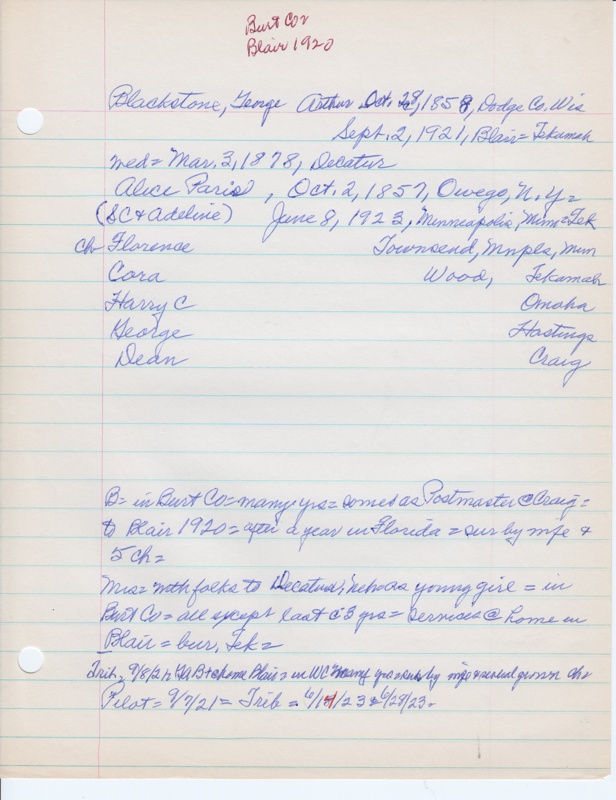 Burt Co
Blair 1920
Blackstone, George Arthur Oct. 28, 1858, Dodge Co. Wis
Sept. 2, 1921, Blair = Tekamah
med = Mar. 3, 1878, Decatur
Alice Paris, Oct. 2, 1857, Owego, N.Y. =
(SC & Adeline) June 8, 1923, Minneapolis, Minn = Tek
ch Florence Townsend, Mnpls, Minn
Cora Wood, Tekamah
Harry C Omaha
George Hastings
Dean Craig
B = in Burt Co = many yrs = some as Postmaster @ Craig =
to Blair 1920 = after a year in Florida = sur by wife &
5 ch =
Mrs = with folks to Decatur, Neb as young girl = in
Burt Co = all except last 3 yrs = services @ home in
Blair = bur. Tek =
Trib = 9/8/21 home Blair = in WC many yrs by wife & several grown ch
Pilot = 9/7/21 = Trib = 6/14/23 & 6/28/23 =